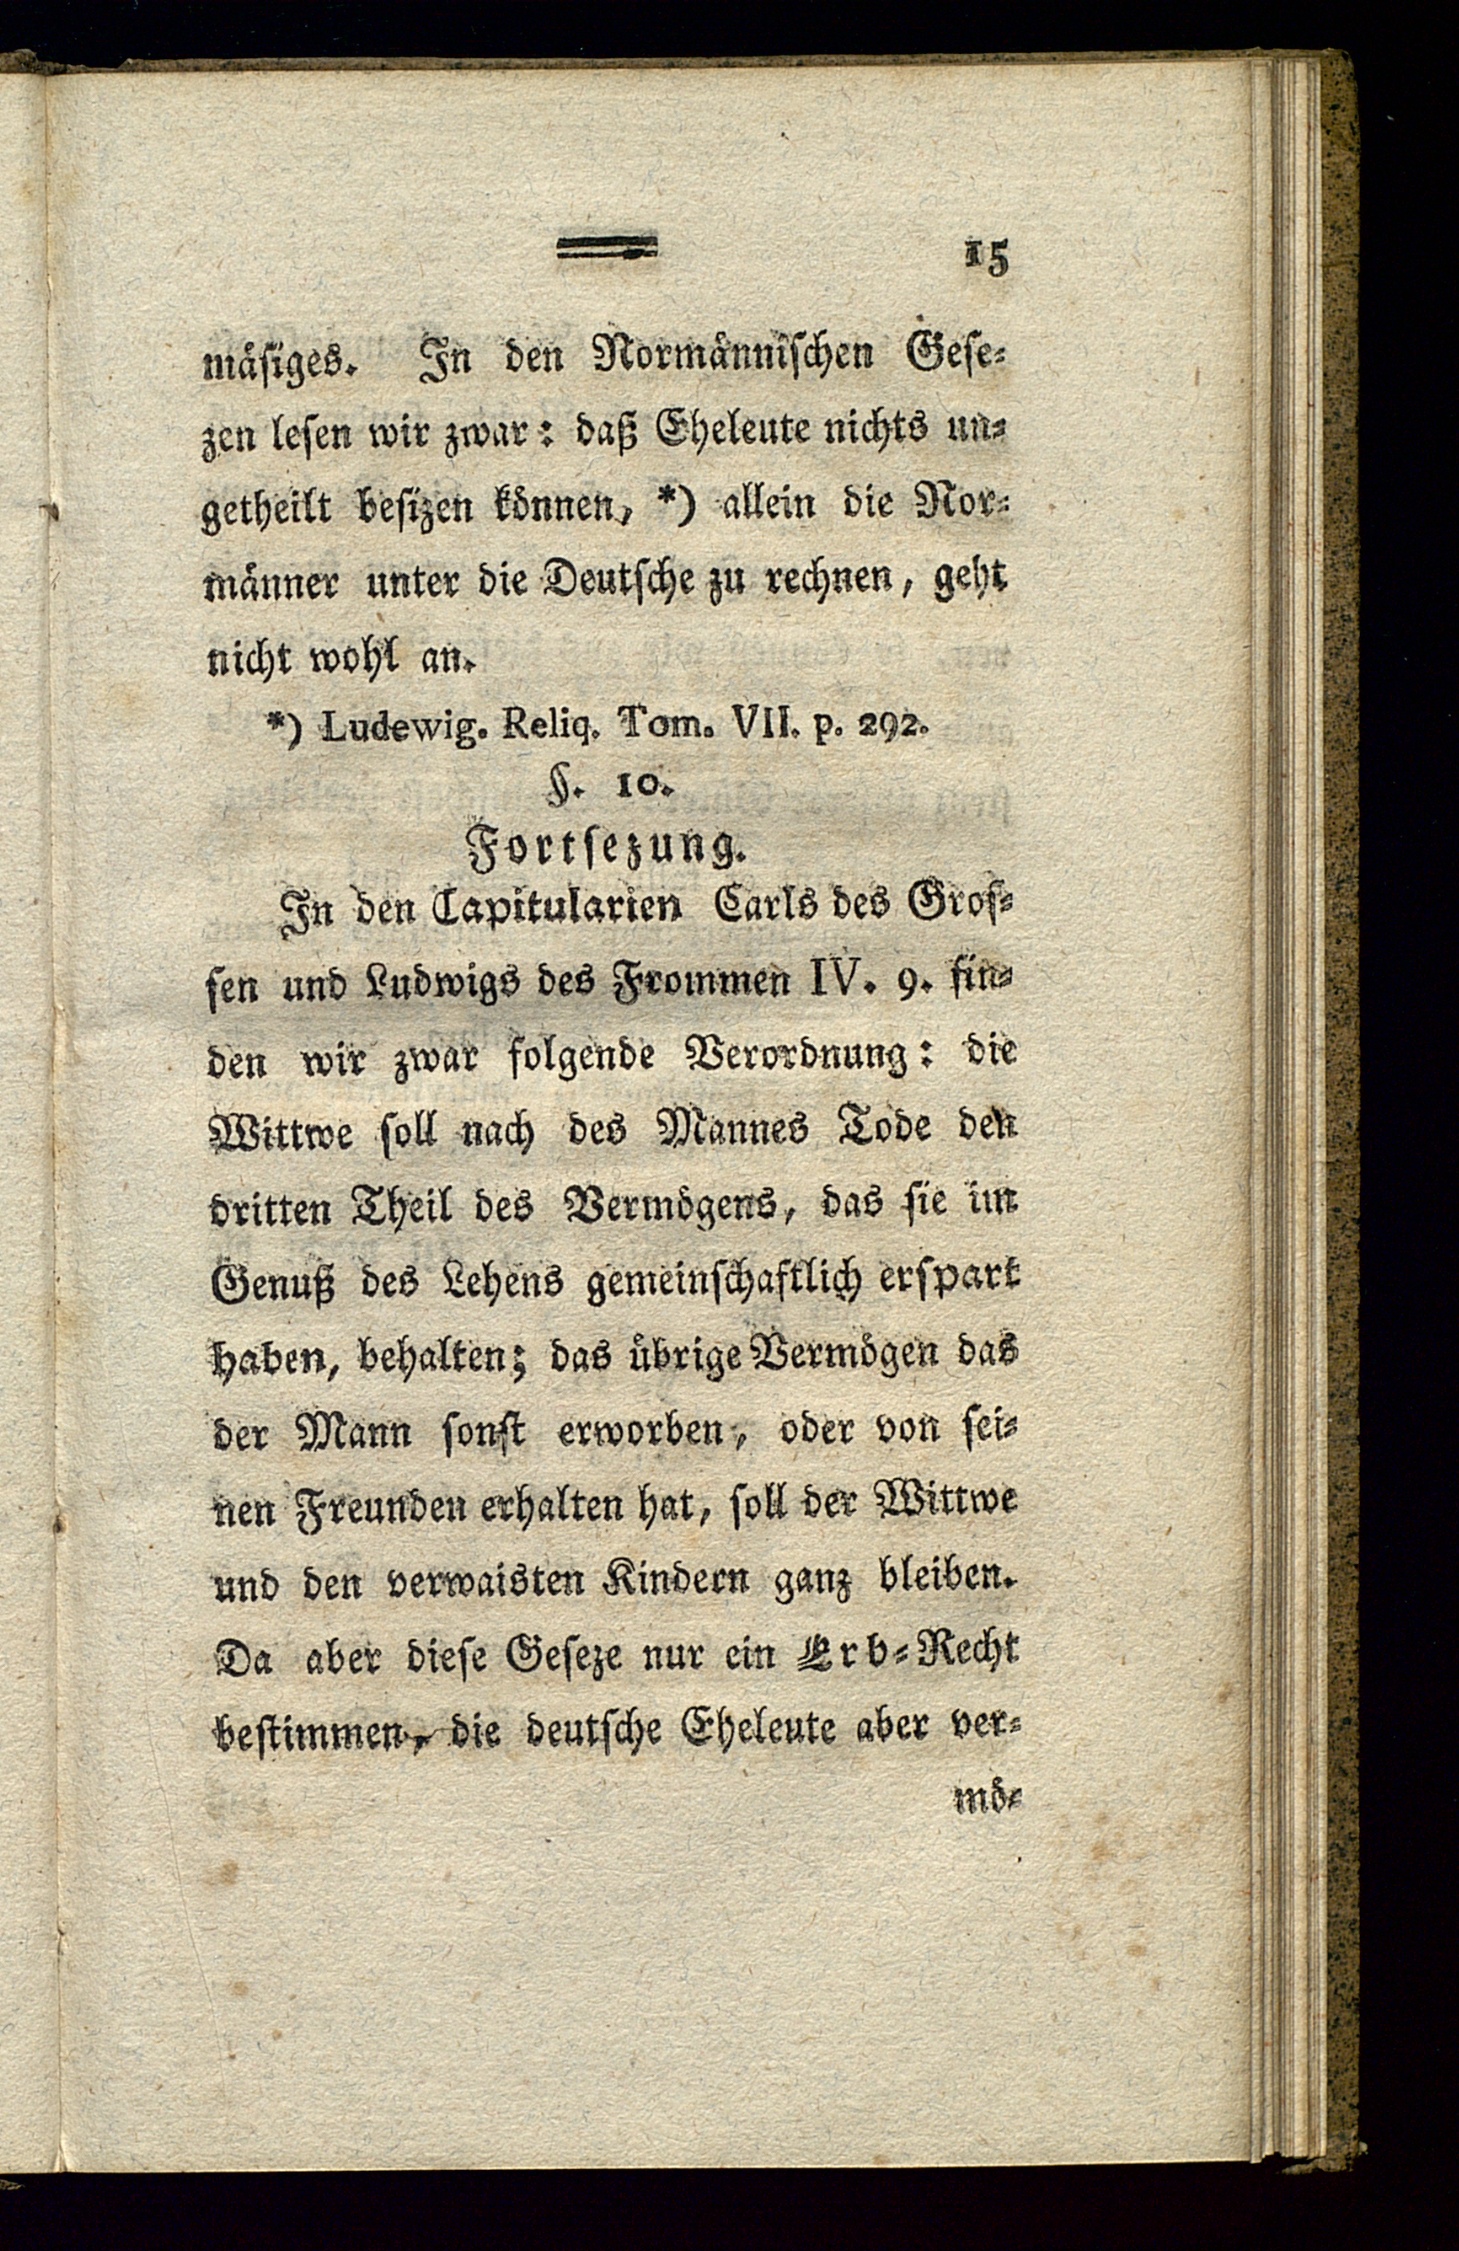 15
mäsiges. In den Normännischen Gese-
zen lesen wir zwar: daß Eheleute nichts un-
getheilt besizen können, *) allein die Nor-
männer unter die Deutsche zu rechnen, geht
nicht wohl an.
*) Ludewig. Reliq. Tom. VII. p. 292.
§. 10.
Fortsezung.
In den Capitularien Carls des Gros-
sen und Ludwigs des Frommen IV. 9. fin-
den wir zwar folgende Verordnung: die
Wittwe soll nach des Mannes Tode den
dritten Theil des Vermögens, das sie im
Genuß des Lehens gemeinschaftlich erspart
haben, behalten; das übrige Vermögen das
der Mann sonst erworben, oder von sei-
nen Freunden erhalten hat, soll der Wittwe
und den verwaisten Kindern ganz bleiben.
Da aber diese Geseze nur ein Erb-Recht
bestimmen, die deutsche Eheleute aber ver-
mö-